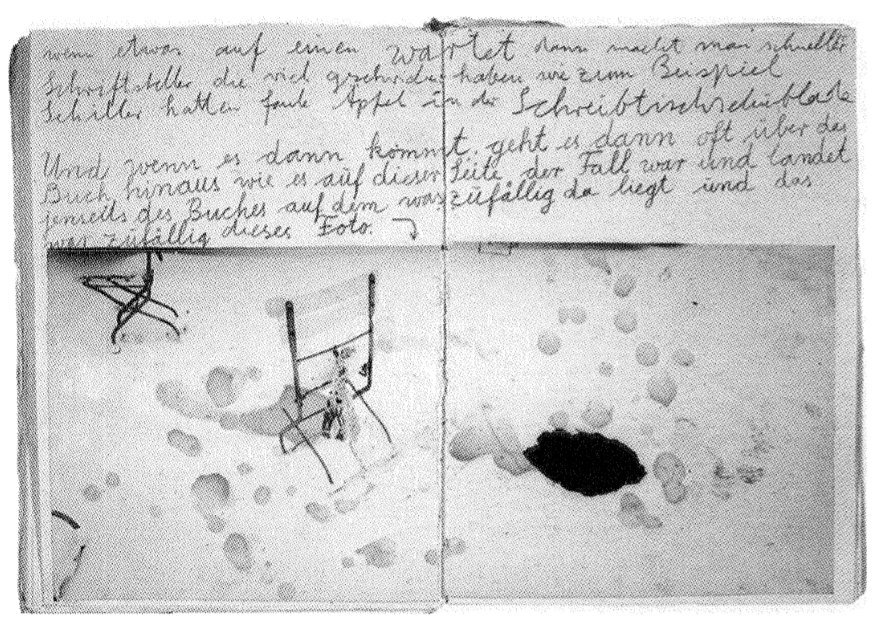 wenn etwas auf einen wartet dann macht man schneller
Schriftsteller die viel geschrieben haben wie zum Beispiel
Schiller hatten faule Äpfel in der Schreibtischschublade
Und wenn es dann kommt, geht es dann oft über das
Buch hinaus wie es auf dieser Seite der Fall war und landet
jenseits des Buches auf dem was zufällig da liegt und das
war zufällig dieses Foto.